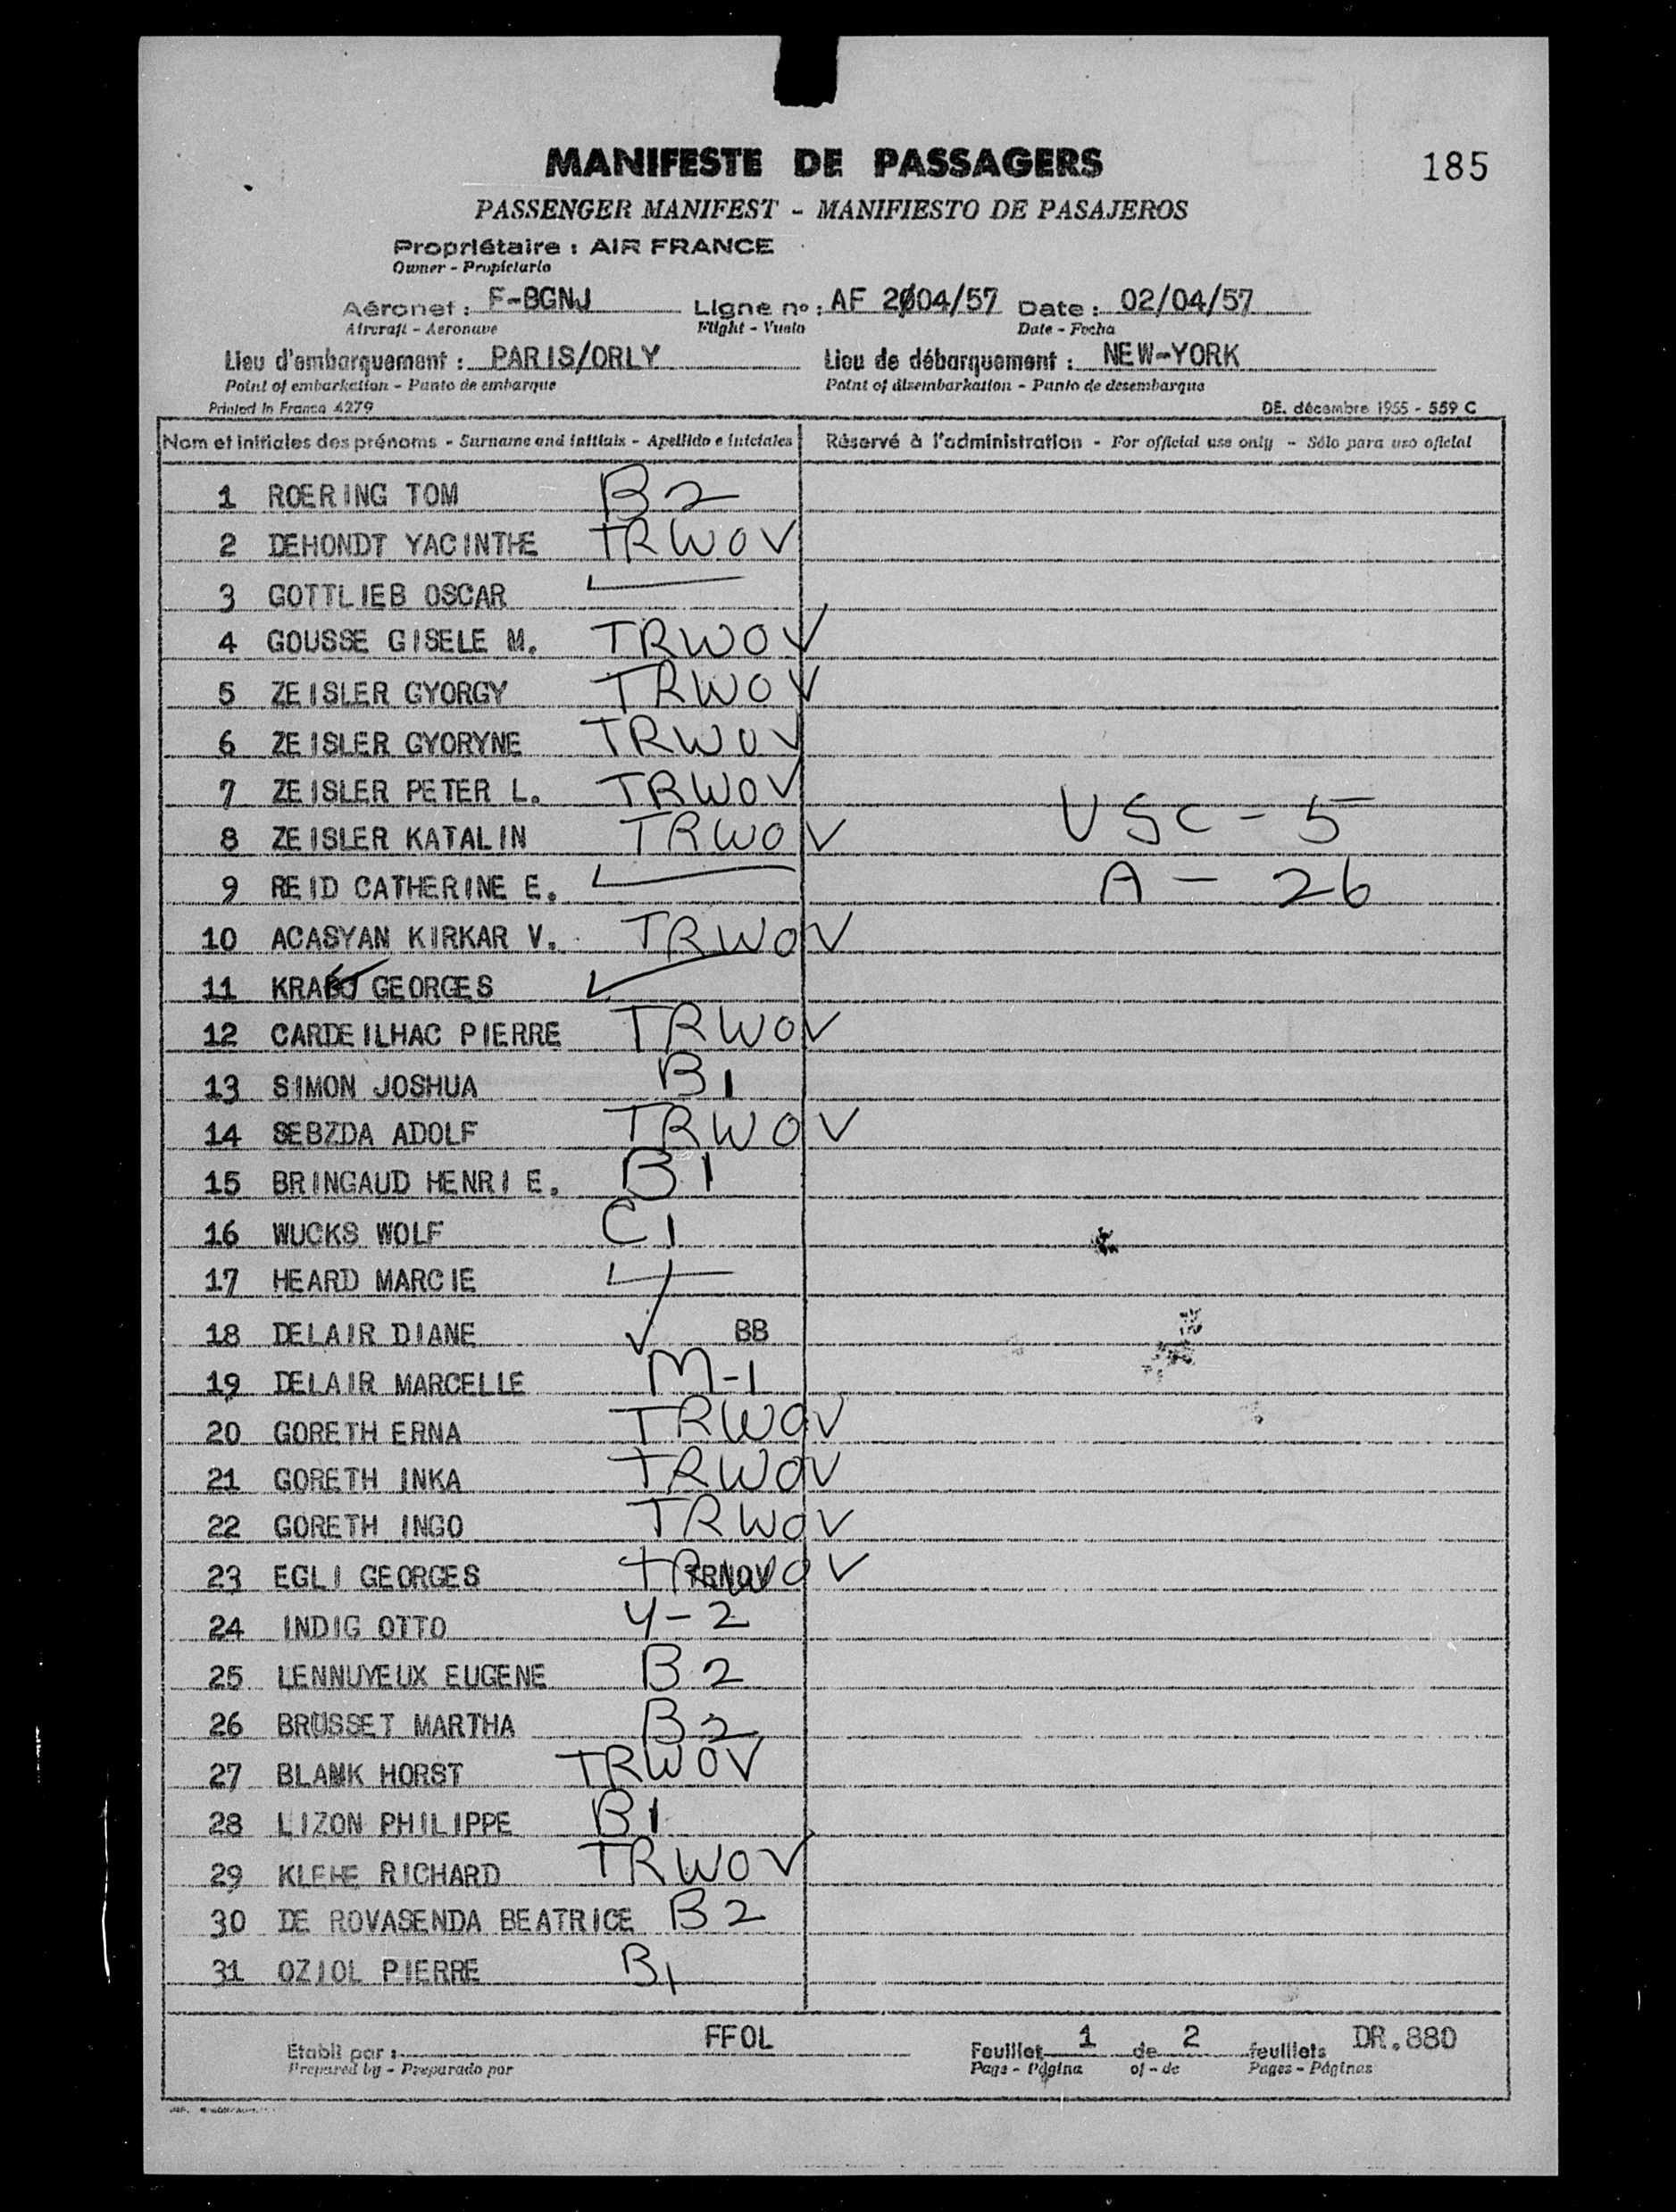 MANIFESTE DE PASSAGERS
185
PASSENGER MANIFEST - MANIFIESTO DE PASAJEROS
Propriétaire : AIR FRANCE
Owner - Propietario
Aéronef : F-BGNJ Ligne nº : AF 2004/57 Date : 02/04/57
Aircraft - Aeronave Flight - Vuelo Date - Fecha
Lieu d'embarquement : PARIS/ORLY Lieu de débarquement : NEW-YORK
Point of embarkation - Punto de embarque Point of disembarkation - Punto de desembarque
Printed in France 4279 DE. décembre 1955 - 559 C
Nom et initiales des prénoms - Surname and initials - Apellido e iniciales Réservé à l'administration - For official use only - Sólo para uso oficial
1 ROERING TOM B2
2 DEHONDT YACINTHE TRWOV
3 GOTTLIEB OSCAR
4 GOUSSE GISELE M. TRWOV
5 ZEISLER GYORGY TRWOV
6 ZEISLER GYORYNE TRWOV
7 ZEISLER PETER L. TRWOV USC - 5
8 ZEISLER KATALIN TRWOV
9 REID CATHERINE E. A - 26
10 ACASYAN KIRKAR V. TRWOV
11 GEORGES
12 CARDEILHAC PIERRE TRWOV
13 SIMON JOSHUA B1
14 SEBZDA ADOLF TRWOV
15 BRINGAUD HENRI E. B1
16 WUCKS WOLF C1
17 HEARD MARCIE
18 DELAIR DIANE BB
19 DELAIR MARCELLE M-1
20 GORETH ERNA TRWOV
21 GORETH INKA TRWOV
22 GORETH INGO TRWOV
23 EGLI GEORGES TRWOV
24 INDIG OTTO 4-2
25 LENNUYEUX EUGENE B2
26 BRUSSET MARTHA B2
27 HORST TRWOV
28 LIZON PHILIPPE B1
29 KLEHE RICHARD TRWOV
30 DE ROVASENDA BEATRICE B2
31 OZIOL PIERRE B1
Etabli par : FFOL Feuillet 1 de 2 feuillets DR.880
Prepared by - Preparado por Page - Página of - de Pages - Páginas